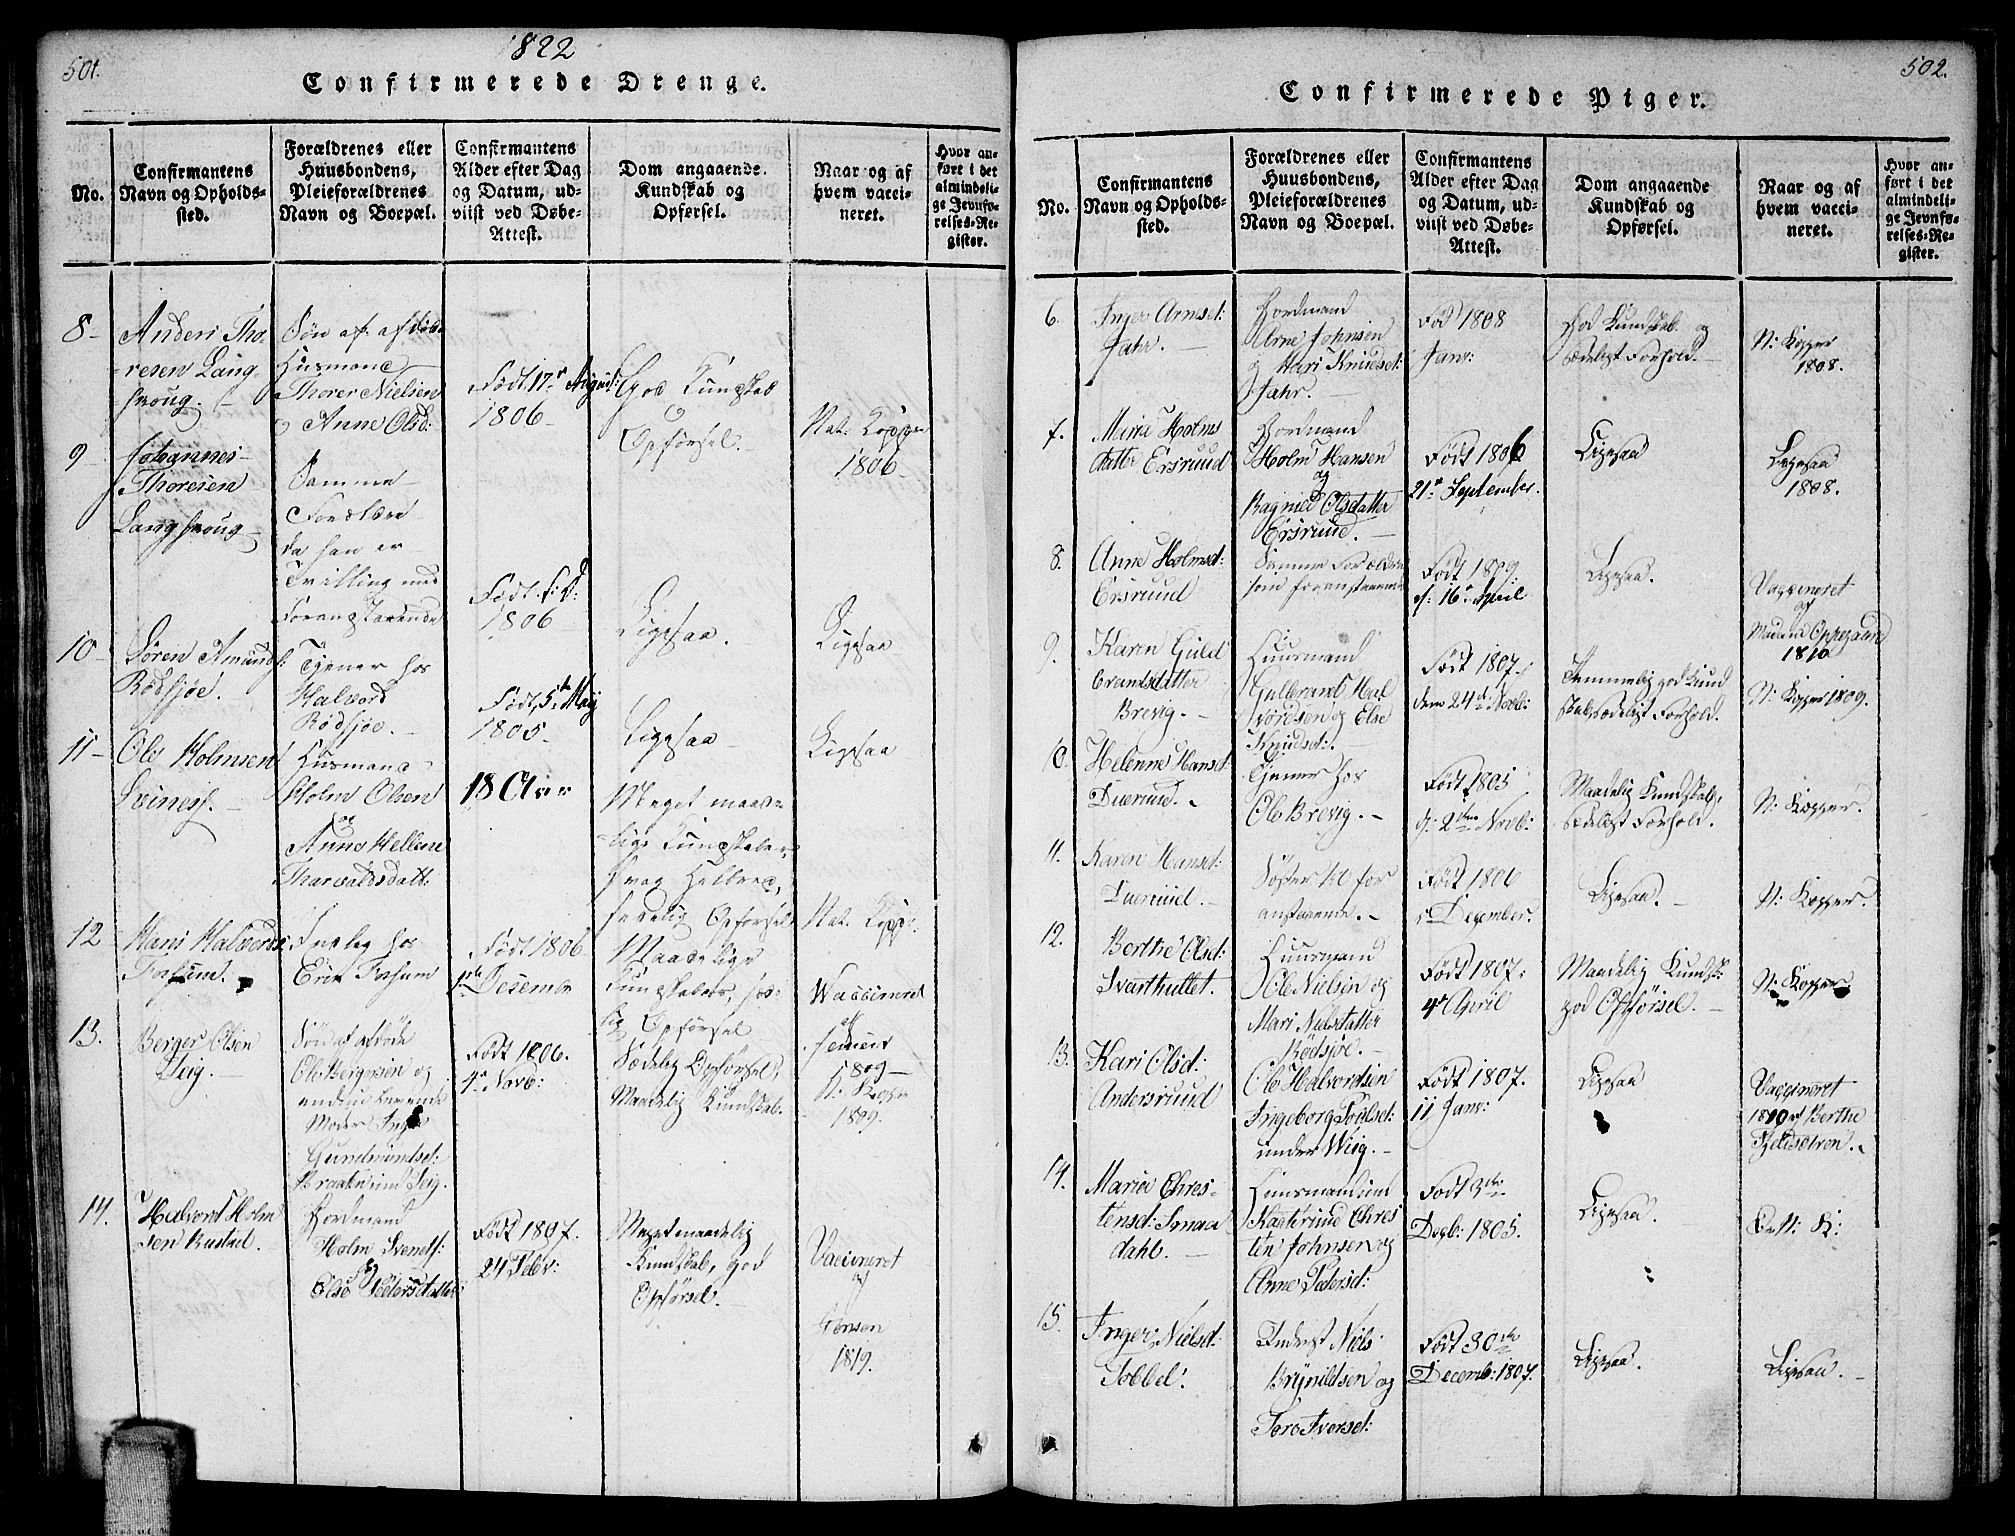 501.
1822
Confirmerede Drenge.
No.
Confirmantens
Navn og Opholds-
sted.
Forældrenes eller
Huusbondens,
Pleieforældrenes
Navn og Boepæl.
Confirmantens
Alder efter Dag
og Datum, ud-
viist ved Døbe-
Attest.
Dom angaaende
Kundskab og
Opførsel.
Naar og af
hvem vacci-
neret.
Hvor an-
ført i det
almindeli-
ge Jevnfø-
relses-Re-
gister.
8-
Anders Tho-
resen Lang-
Søn af afdøde
Husmand
Thorer Nielsen
og Anne Olsd:
Født 17de August:
1806
God Kundskab
Opførsel.
Nat. Kopper
1806
9-
Johannes
Thoresen
Samme
Forældre
da han er
Tvilling med
Foranstaaende
1806
Ligesaa.
Ligesaa
10-
Søren Amunds:
Rødsjøe.
Tjener hos
Halvord
Rødsjøe.
Født 5te May
1805
Ligesaa
Ligesaa
11-
Ole Holmsen
Husmand
Holm Olsen
og
Anne Hellene
Tharvaldsdatt:
18 Aar
Meget maade-
lige Kundskaber,
svag Helbred,
Opførsel
Nat. Kopp:
12
Hans Halvords:
Forsum.
hos
Erik Forsum
Født 1806
Desember
Maadelige
Kundskaber,
Opførsel
Vaccineret
af
1809
13.
Berger Olsen
Søn af afdøde
Ole Bergersen og
endnu levende
Moder Inge
Gundmundsd:
Født 1806.
4de Novb:
Sædelig Opførsel,
Maadelig Kundskab.
N: Kopper
1809.
14.
Halvord Holm
sen Rustad.
Gordmand
Holm Svends:
og
Else Pedersdatter
Født 1807.
24 Febr:
Meget maadelig
Kundskab, god
Opførsel.
Vaccineret
af
Jensen
1819.
502.
Confirmerede Piger.
No.
Confirmantens
Navn og Opholds-
sted.
Forældrenes eller
Huusbondens,
Pleieforældrenes
Navn og Boepæl.
Confirmantens
Alder efter Dag
og Datum, ud-
viist ved Døbe-
Attest.
Dom angaaende
Kundskab og
Opførsel.
Naar og af
hvem vacci-
neret.
Hvor an-
ført i det
almindeli-
ge Jevnfø-
relses-Re-
gister.
6.
Inger Arnsd:
Jahr.
Gordmand
Arne Johnsen
og Mari Knudsd:
Jahr.
Fød 1808
Janv:
God Kundskab og
sædeligt Forhold.
N: Kopper
1808.
7.
Maria Holms
datter Ersruud
Gordmand
Holm Hansen
og
Ragnild Olsdatter
Ersruud.
Født 1806
21de September.
Ligesaa
Ligesaa
1808.
8.
Anne Holmsd:
Ersruud
Samme Forældre
som foranstaaende
Født 1809:
d: 16de April
Ligesaa.
Vaccineret
af
Madame Oppegaard
1810
9.
Karen Guld
brandsdatter
Brevig.
Huusmand
Gulbrand Hal
vordsen og Else
Knudsd:
Født 1807:
den 24de Novb:
Temmelig god Kund
skab, sædeligt Forhold.
N: Kopper 1809.
10.
Helenne Hansd:
Duerud.
Tjener hos
Ole Brevig.
Født 1805
d: 2den Novb:
Maadelig Kundskab,
sædeligt Forhold.
N: Kopper.
11.
Karen Hansd:
Duerud.
Søster til for
anstaaende.
Født 1806
December.
Ligesaa.
N: Kopper.
12.
Berthe Olsd:
Svarthullet.
Huusmand
Ole Nielsen og
Mari Nielsdatter
Rødsjøe.
Født 1807:
4de April
Maadelig Kundsk:
god Opførsel.
N: Kopper
13.
Kari Olsd:
Andersruud
Ole Halvordsen
Ingeborg Poulsd:
under Wiig.
Født 1807.
11 Janv:
Ligesaa
Vaccineret
1810 af Berthe
14.
Maria Chres-
tensd: Smaa
dahl.
Chres
ten Johnsen og
Anne Pedersd:
Født 3die
Decb: 1805.
Ligesaa.
N: K:
15.
Inger Nielsd:
Tobbel.
Niels
Brynildsen og
Tore Iversd:
Født 30te
Decemb: 1807.
Ligesaa.
Ligesaa.